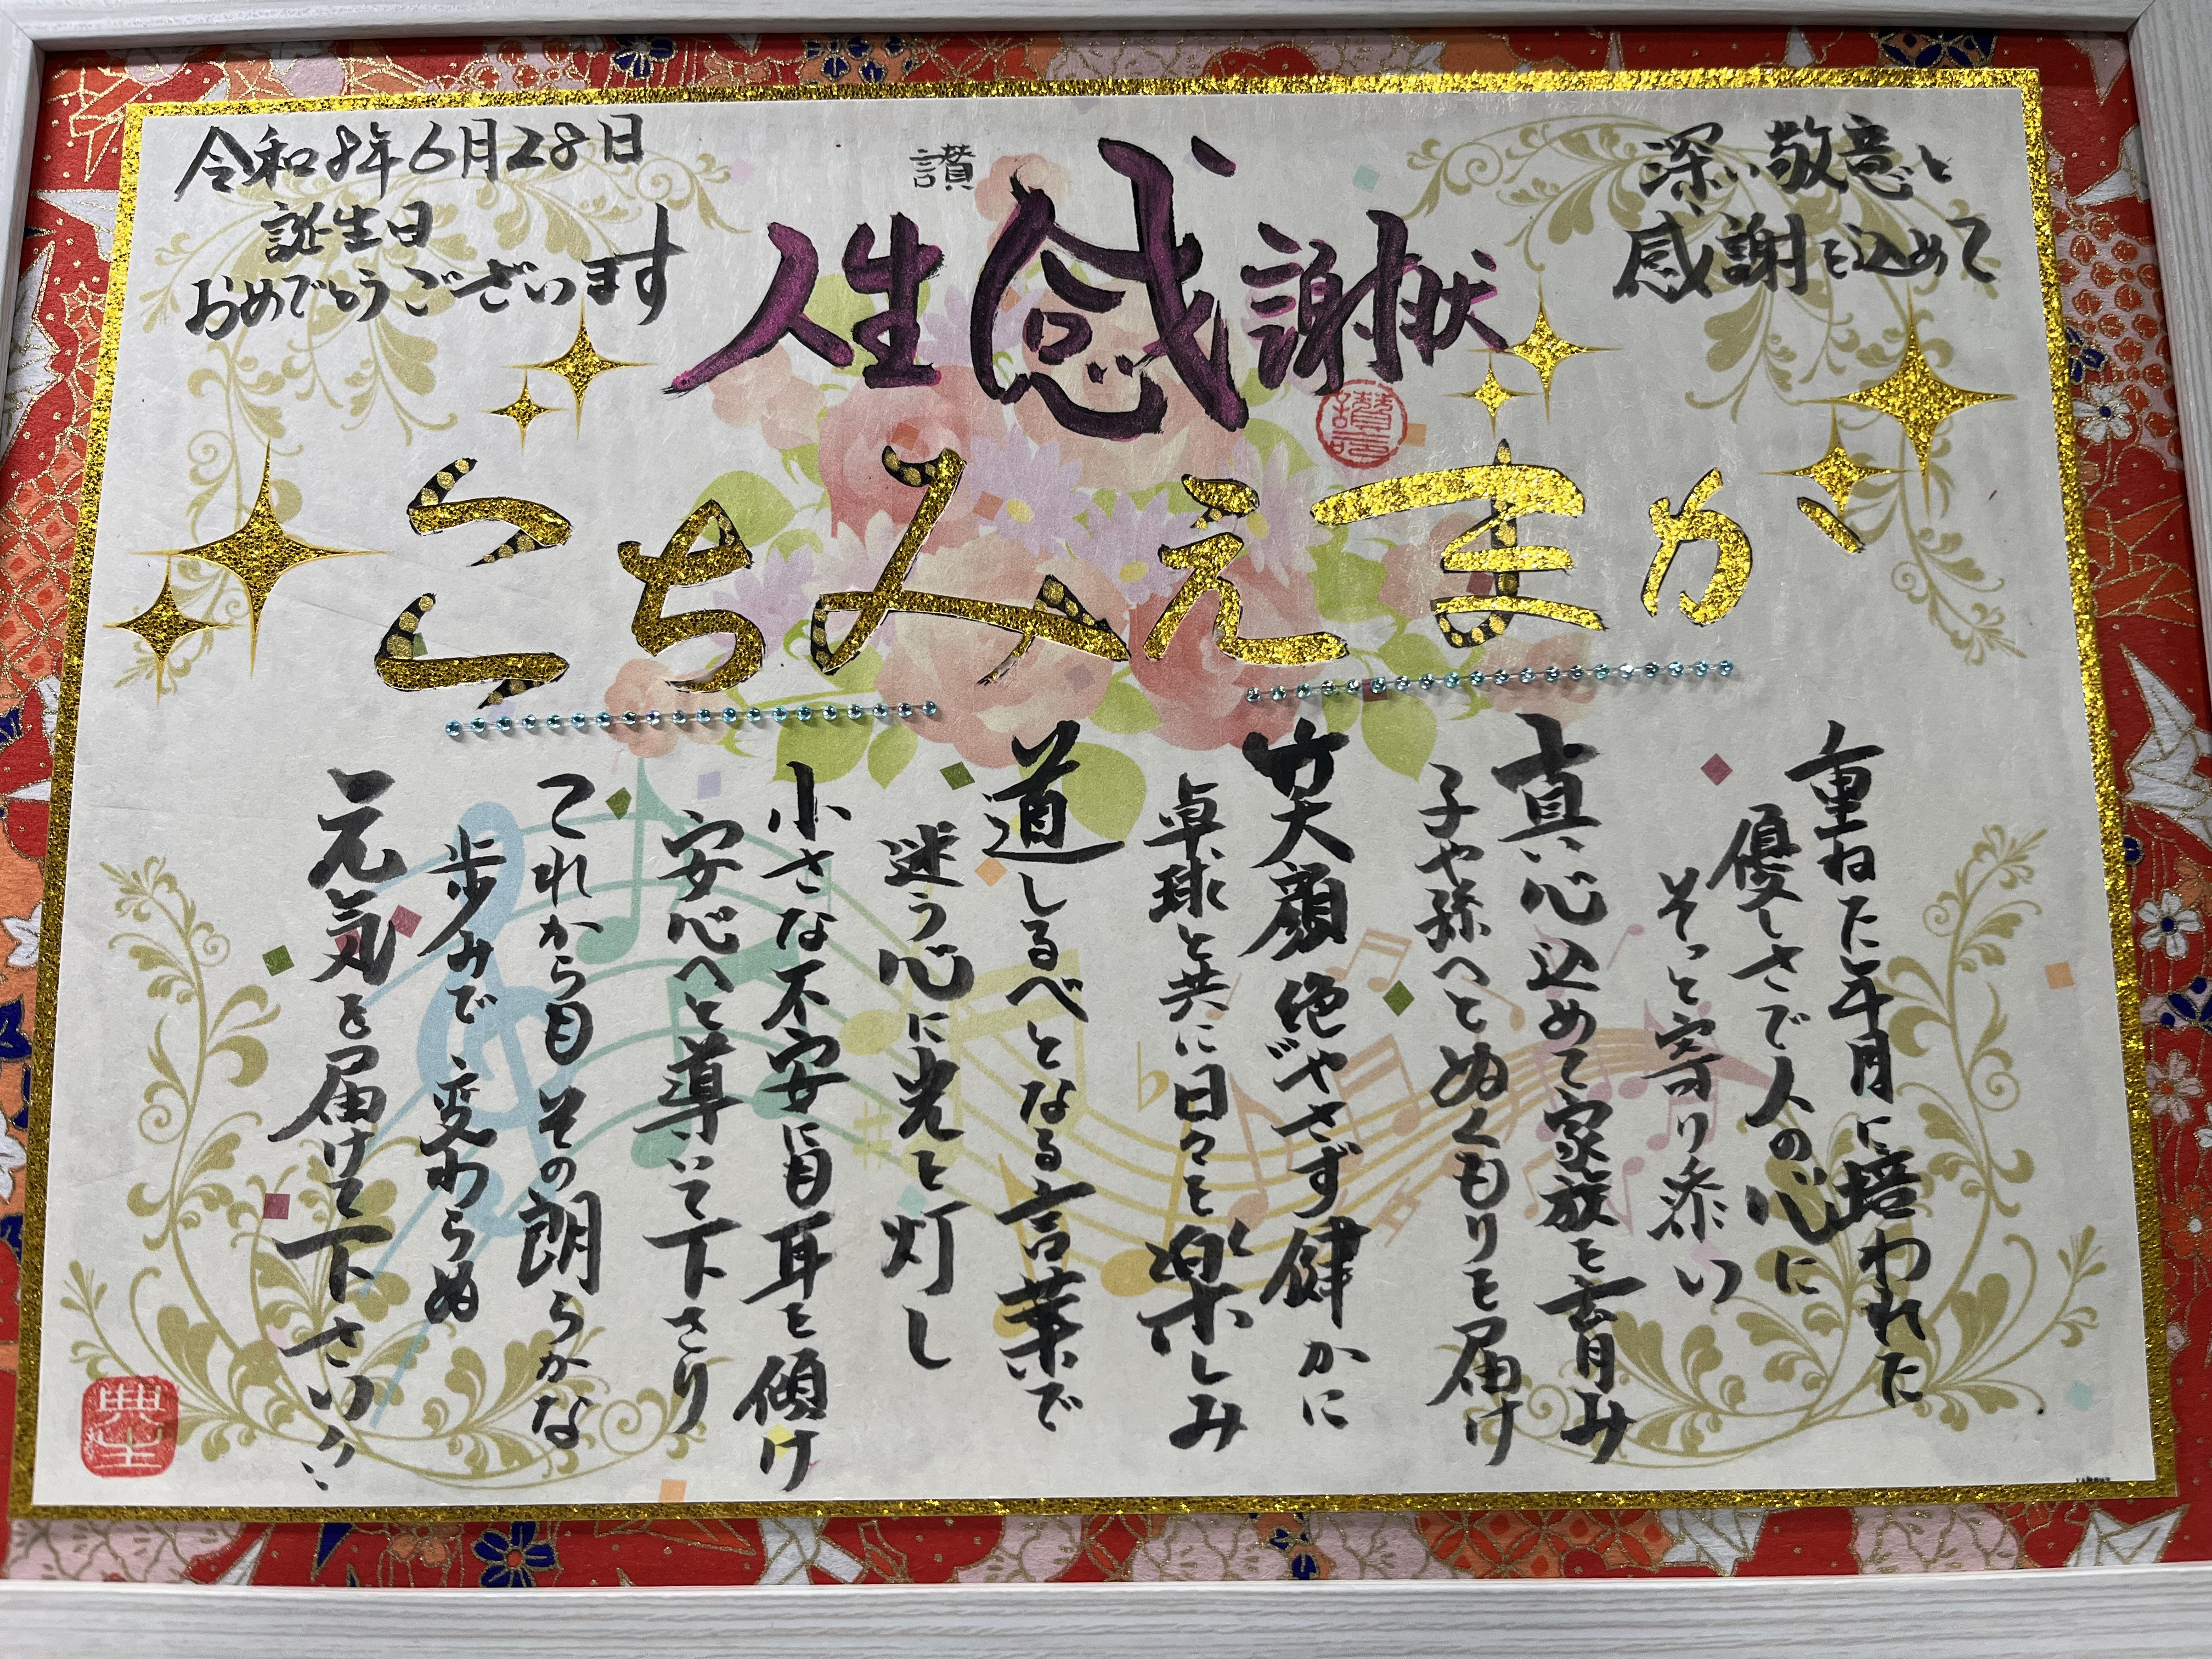 深い敬意と
感謝を込めて
讃
人生感謝状
令和8年6月28日
誕生日
おめでとうございます
かまえみちこ
重ねた年月に培われた
優しさで人の心に
そっと寄り添い
真心込めて家族を育み
子や孫へとぬくもりを届け
笑顔絶やさず健かに
卓球と共に日々を楽しみ
道しるべとなる言葉で
迷う心に光を灯し
小さな不安にも耳を傾け
安心へと導いて下さり
これからもその朗らかな
歩みで変わらぬ
元気を届けて下さい
典生